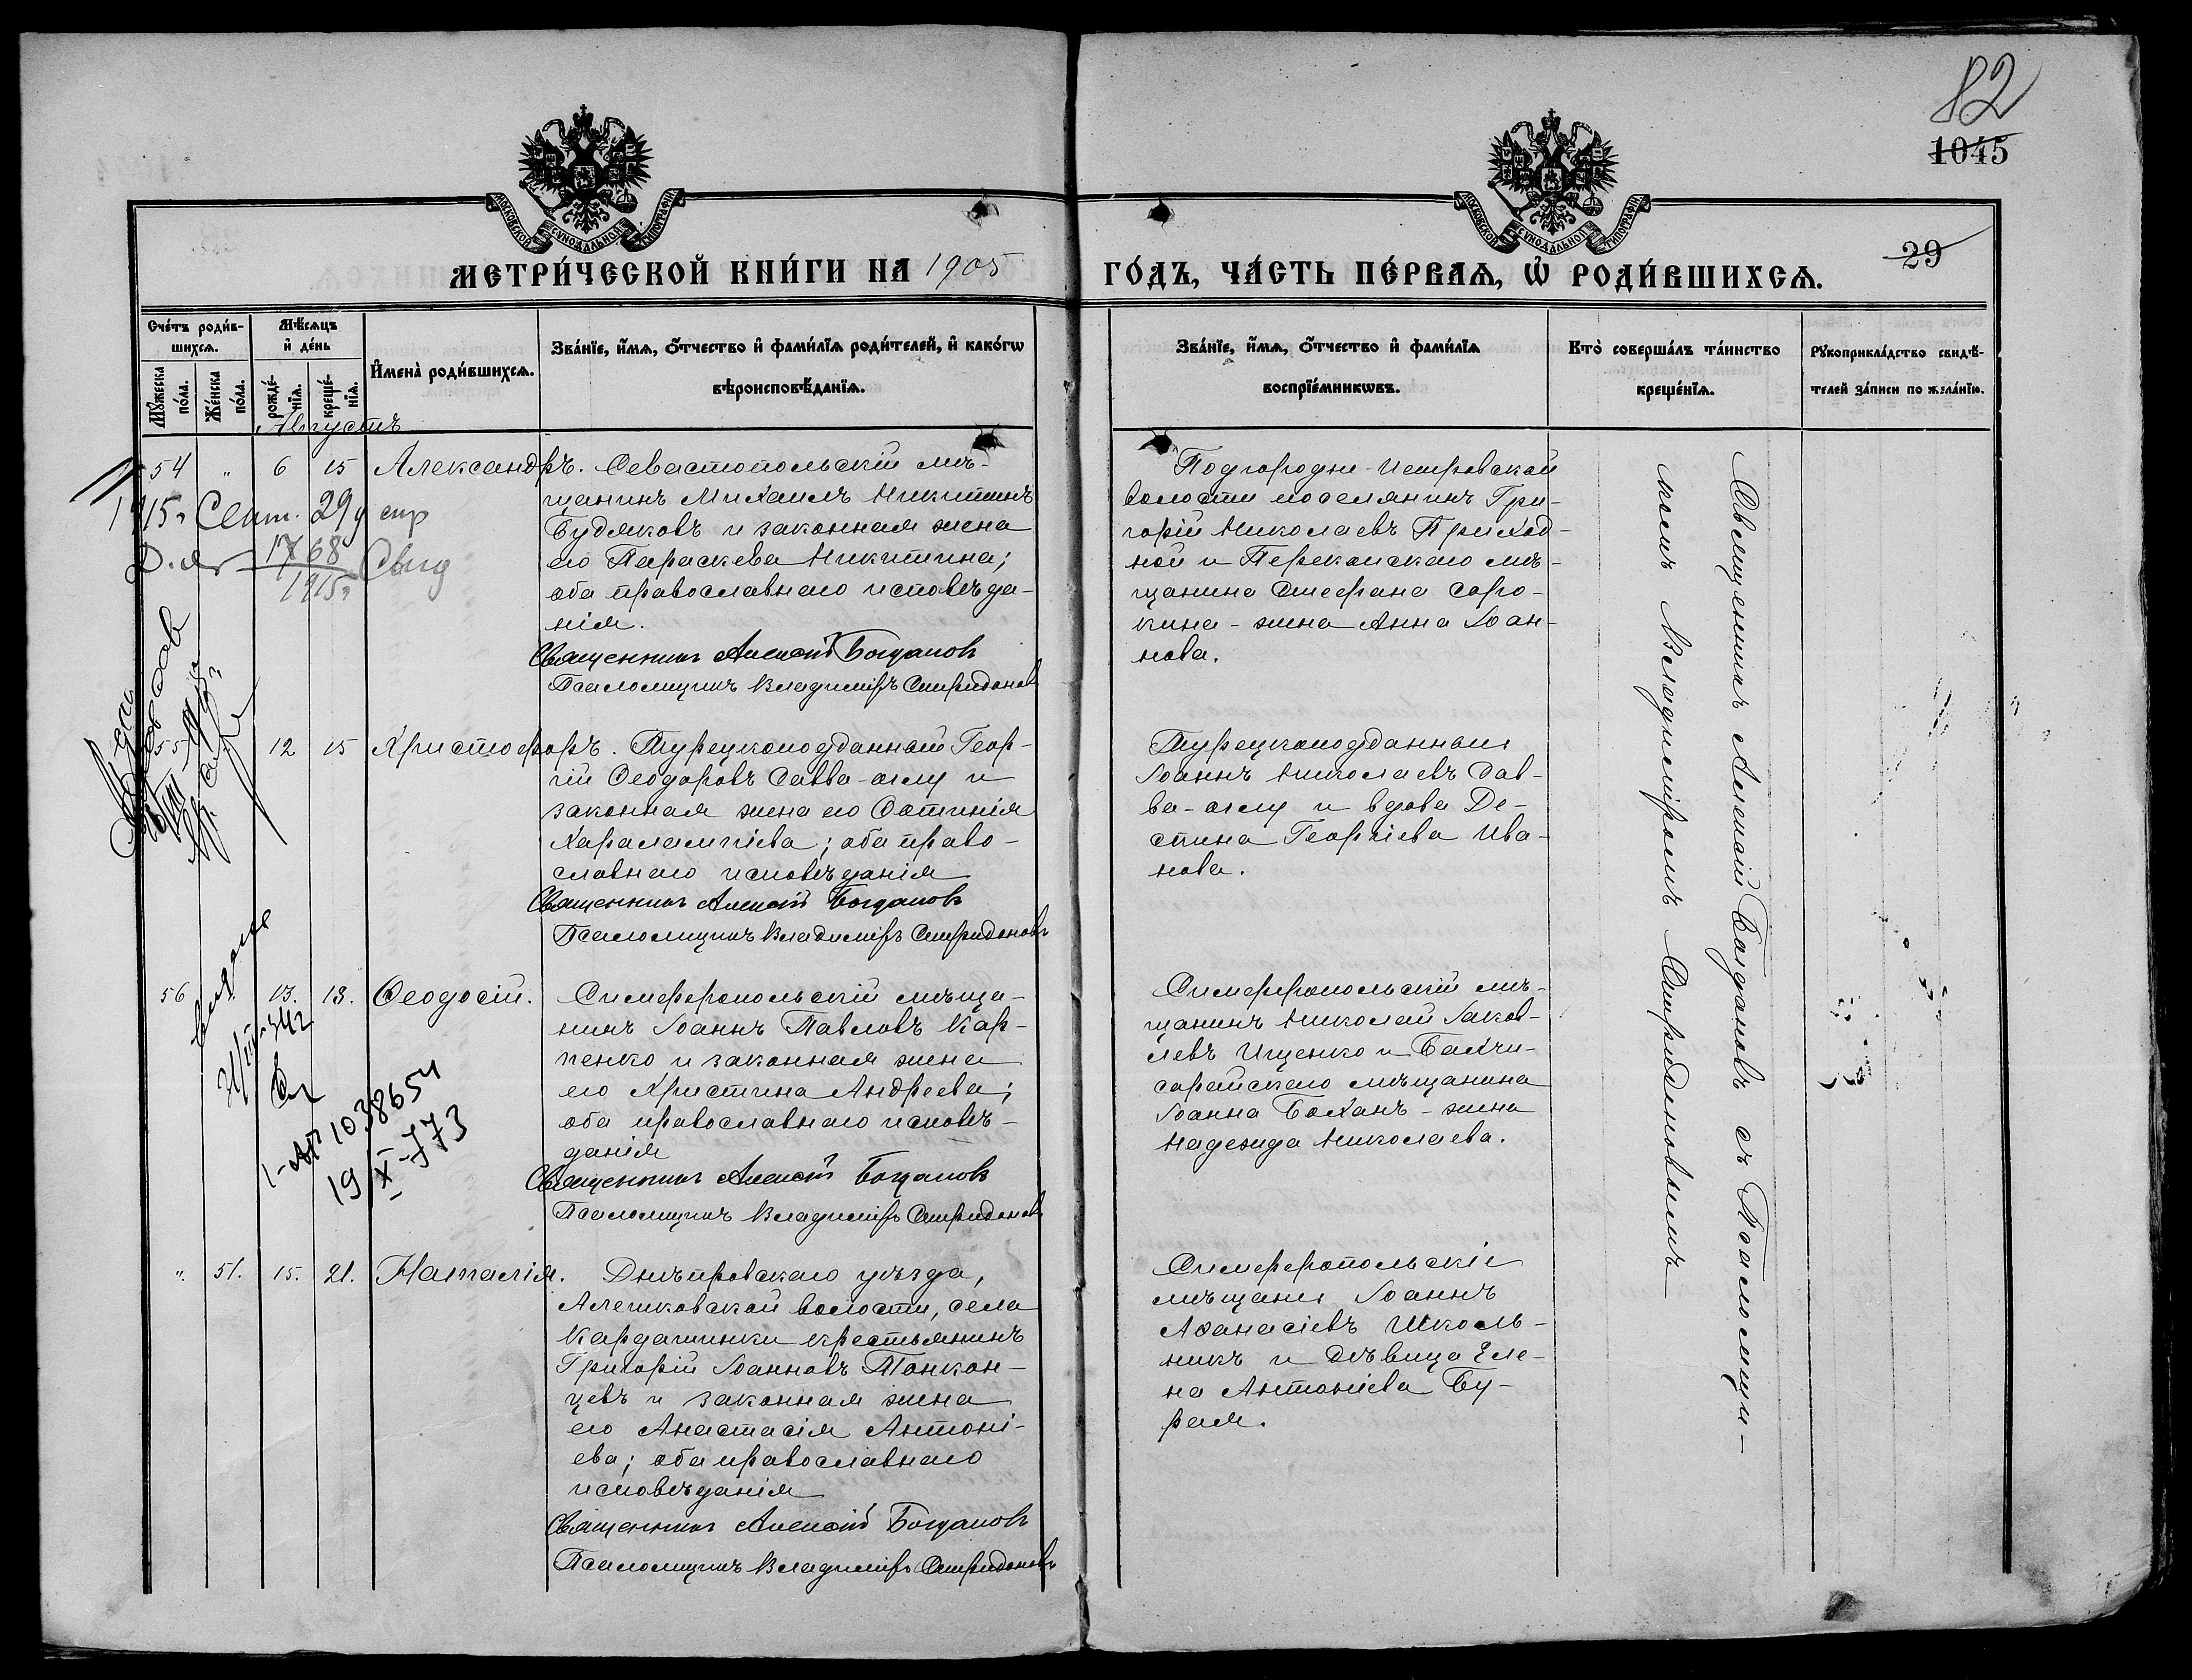 82
1045
29
МЕТРИ́ЧЕСКОЙ КНИ́ГИ НА 1905 ГО́ДЪ, ЧА́СТЬ ПЕ́РВАЯ, Ѽ РОДИ́ВШИХСЯ.
Сче́тъ роди́вшихся.
Му́жеска по́ла.
Же́нска по́ла.
Мѣ́сяцъ и де́нь
рожде́нїя.
креще́нїя.
Имена̀ роди́вшихся.
Зва́нїе, и́мя, о́тчество и фами́лїя роди́телей, и како́гѡ
вѣроисповѣ́данїя.
Зва́нїе, и́мя, о́тчество и фами́лїя
воспрїе́мникѡвъ.
Кто̀ соверша́лъ та́инство
креще́нїя.
Рукоприкла́дство свидѣ́-
телей за́писи по жела́нїю.
Августъ
54 " 6 15 Александръ. Севастопольскій мѣ-
щанинъ Михаилъ Никитинъ
Будяковъ и законная жена
его Параскева Никитина;
оба православнаго исповѣда-
нія.
Священникъ Алексій Богдановъ
Псаломщикъ Владиміръ Спиридоновъ
Подгородне-Петровской
волости поселянинъ Гри-
горій Николаевъ Приход-
ной и Перекопскаго мѣ-
щанина Стефана Соро-
кина - жена Анна Іоан-
нова.
1915г Сент. 29
1768
1915г
Свид
55 12 15 Христофоръ. Турецкоподданный Геор-
гій Ѳеодоровъ Савва-оглу и
законная жена его Фотинія
Харалампіева; оба право-
славнаго исповѣданія
Священникъ Алексій Богдановъ
Псаломщикъ Владиміръ Спиридоновъ
Турецкоподданный
Іоаннъ Николаевъ Сав-
ва-оглу и вдова Де-
спина Георгіева Ива-
нова.
56 " 13. 18. Ѳеодосій. Симферопольскій мѣща-
нинъ Іоаннъ Павловъ Кар-
пенко и законная жена
его Христина Андреева;
оба православнаго исповѣ-
данія
Священникъ Алексій Богдановъ
Псаломщикъ Владиміръ Спиридоновъ
Симферопольскій мѣ-
щанинъ Николай Іаков-
левъ Ищенко и Бахчи-
сарайскаго мѣщанина
Іоанна Боханъ - жена
Надежда Николаева.
1-АП 1038654
19 X-773
" 51. 15. 21. Наталія. Днѣпровскаго уѣзда,
Алешковской волости, села
Кардашинки крестьянинъ
Григорій Іоанновъ Тонкон-
цевъ и законная жена
его Анастасія Антоні-
ева; оба православнаго
исповѣданія
Священникъ Алексій Богдановъ
Псаломщикъ Владиміръ Спиридоновъ
Симферопольскіе
мѣщане Іоаннъ
Аѳанасіевъ Школь-
никъ и дѣвица Еле-
на Антоніева Бу-
рая.
Священникъ Алексій Богдановъ съ Псаломщи-
комъ Владиміромъ Спиридоновымъ